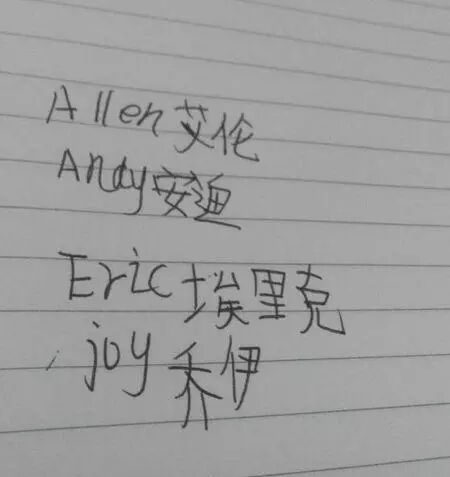 Allen艾伦
Andy安迪
Eric埃里克
joy乔伊